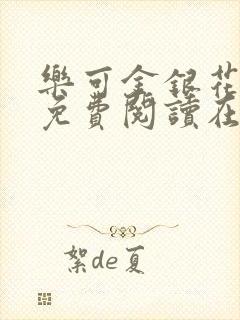 樂可金銀花
免費閱讀在
絮de夏